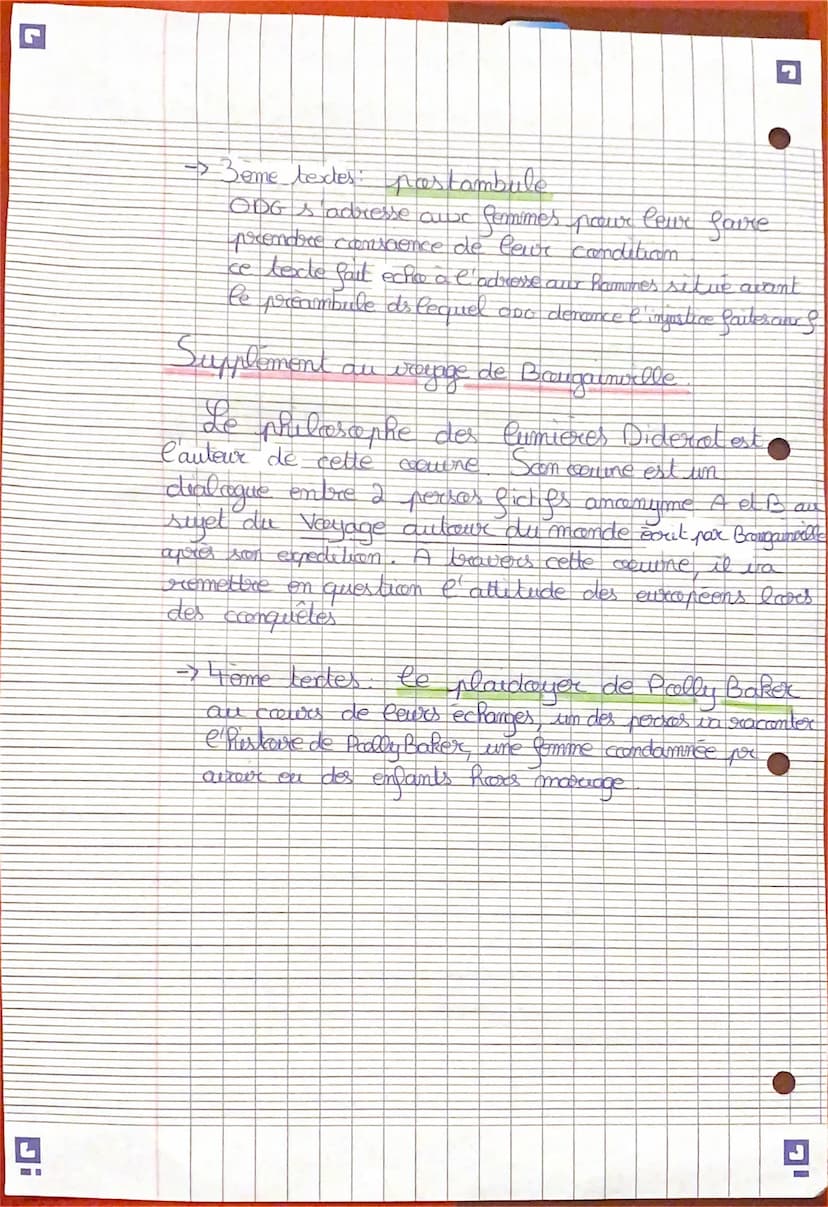 → 3ème textes: postambule
ODG s'adresse aux femmes pour leur faire
prendre conscience de leur condition
ce texte fait echo à l'adresse aux hommes situé avant
le préambule ds lequel ODG denonce l'injustice faites aux f
Supplément au voyage de Bougainville.
Le philosophe des lumières Diderot est
l'auteur de cette oeuvre. Son oeuvre est un
dialogue entre 2 persos fictifs anonyme A et B au
sujet du Voyage autour du monde écrit par Bougainville
après son expedition. A travers cette oeuvre, il va
remettre en question l'attitude des européens lors
des conquêtes
→ 4ème textes: le plaidoyer de Polly Baker
au cours de leurs échanges, un des persos va raconter
l'histoire de Polly Baker, une femme condamnée pr
avoir eu des enfants hors mariage.